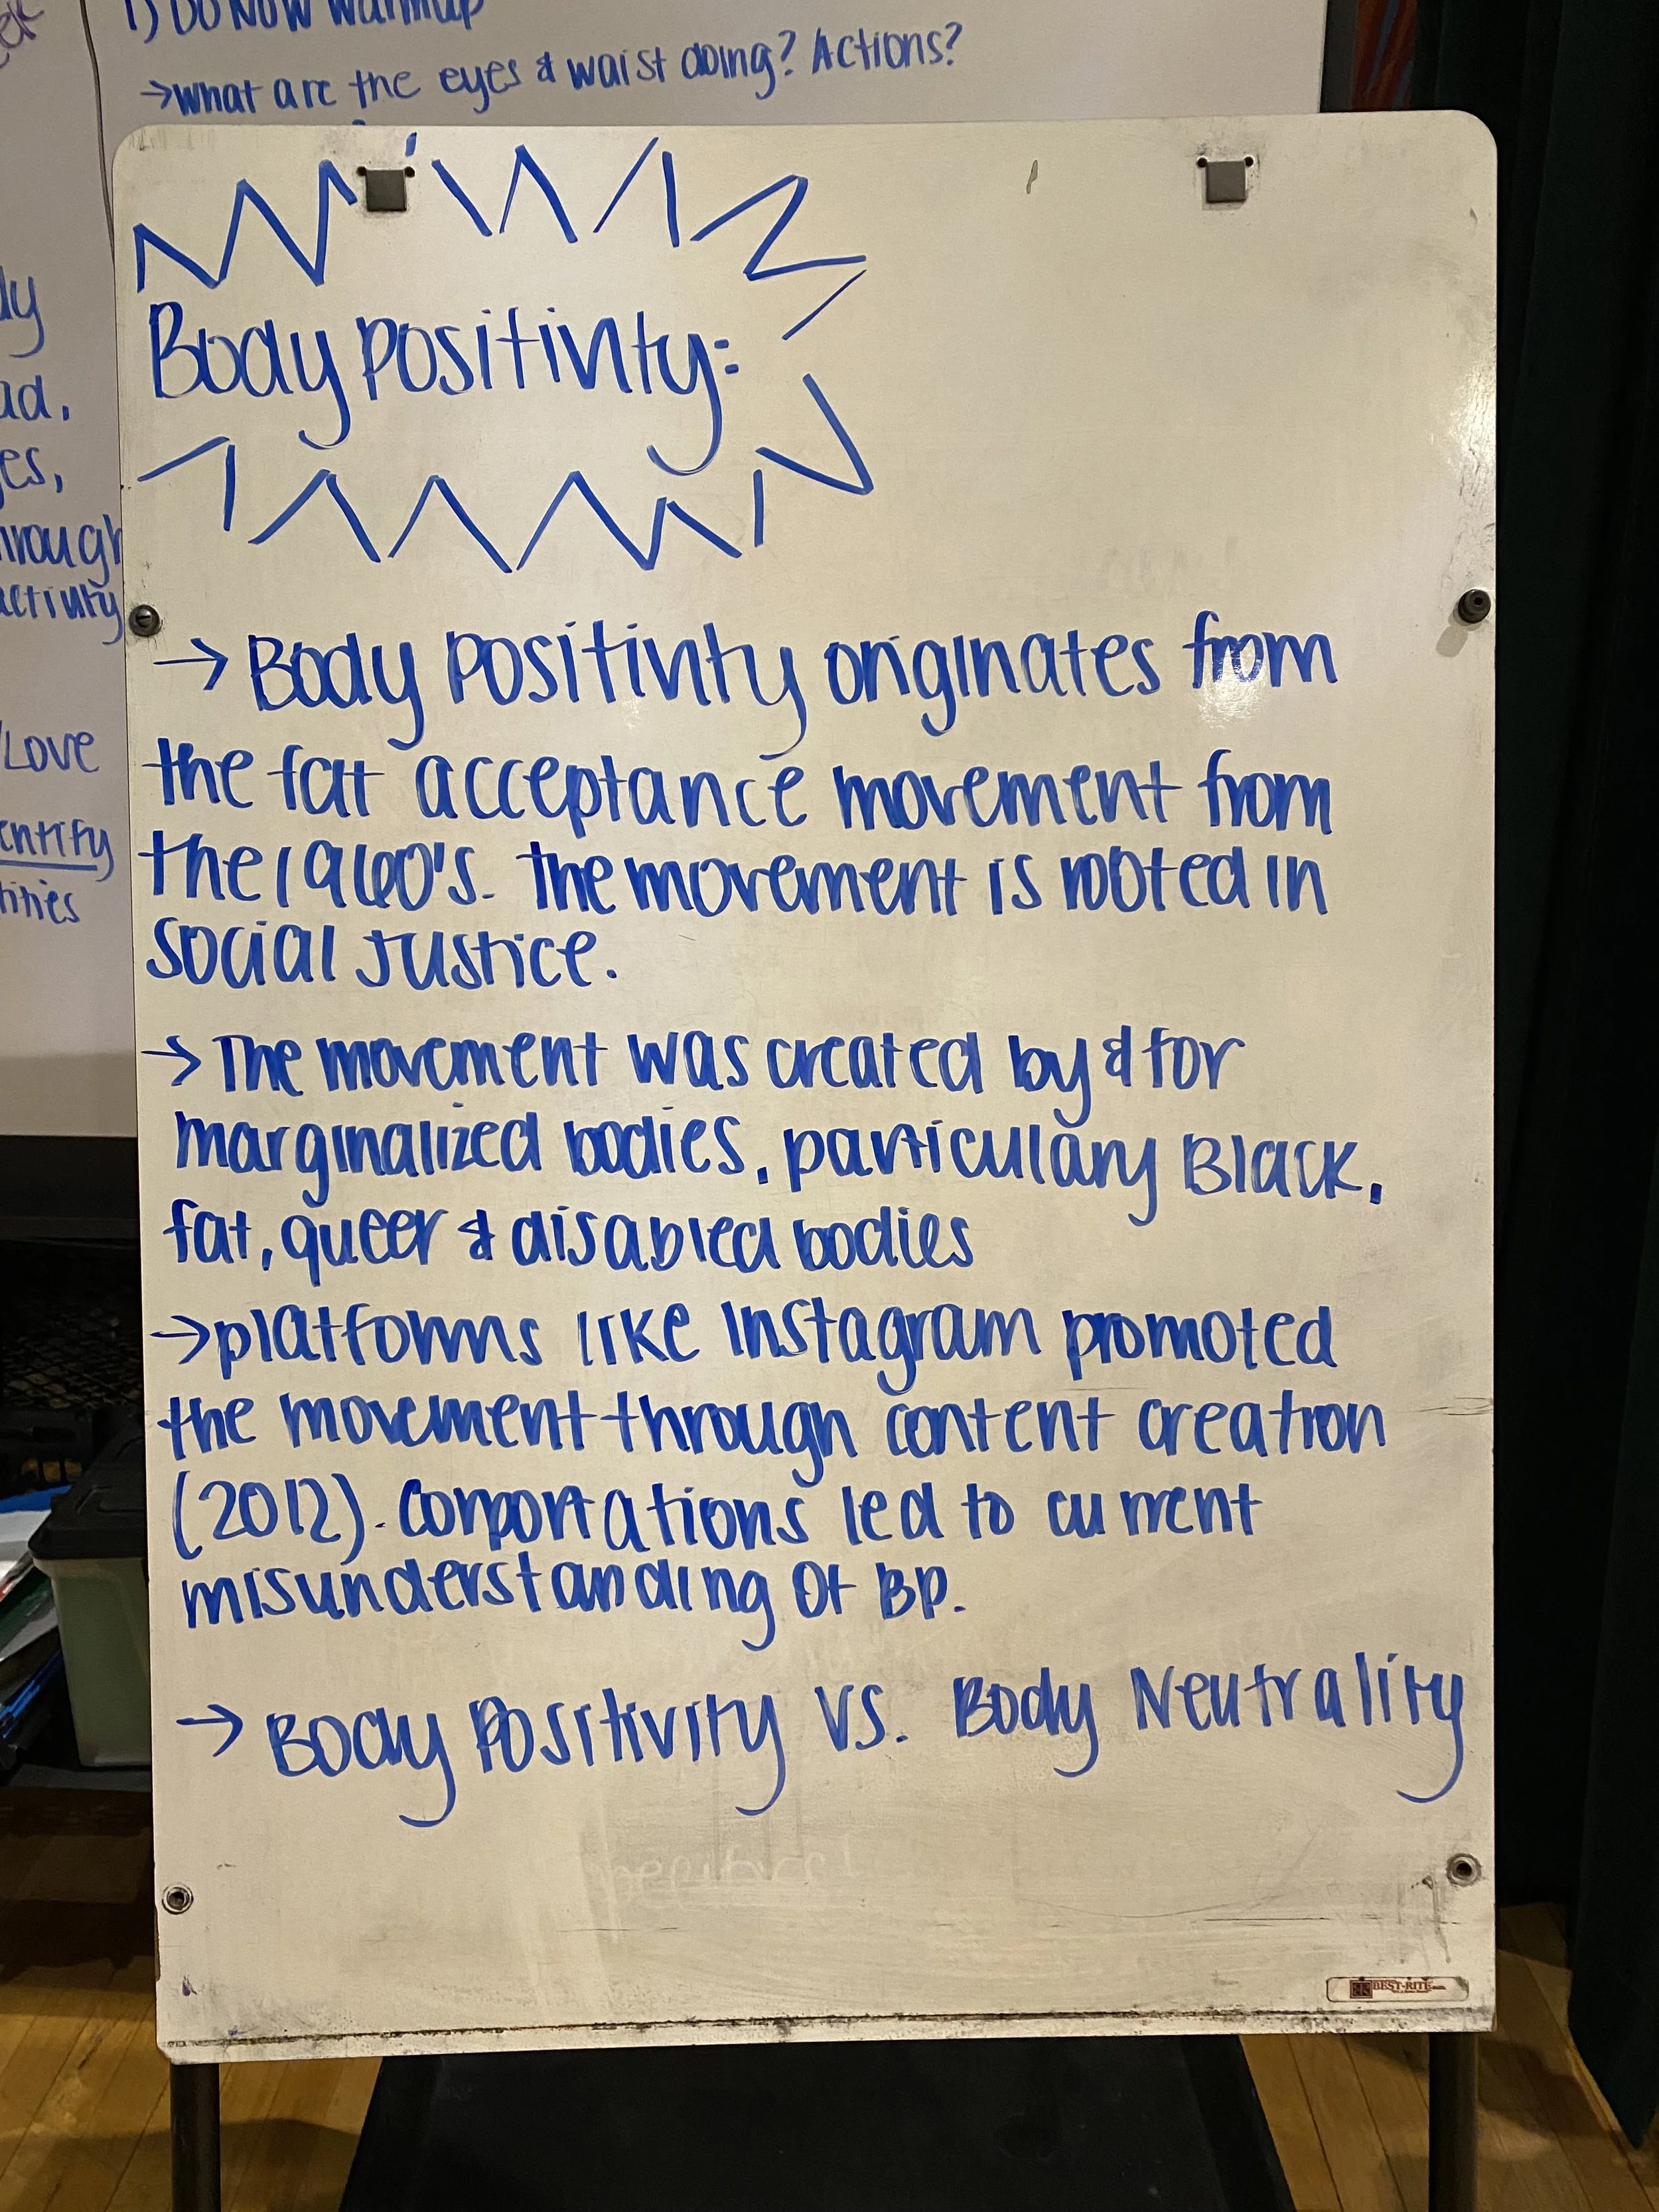 1) Do Now Warmup
→what are the eyes & waist doing? Actions?
Body Positivity:
→ Body Positivity originates from
the fatt acceptance movement from
the 1960's. The movement is rooted in
social Justice.
→ The movement was created by & for
marginalized bodies, particulary Black,
fat, queer & disabled bodies
→platforms like Instagram promoted
the movement through content creation
(2012). Corporations led to current
misunderstanding of BP.
→ Body Positivity vs. Body Neutrality
ad.
es,
hrough
activity
/Love
entity
tities
BEST-RITE